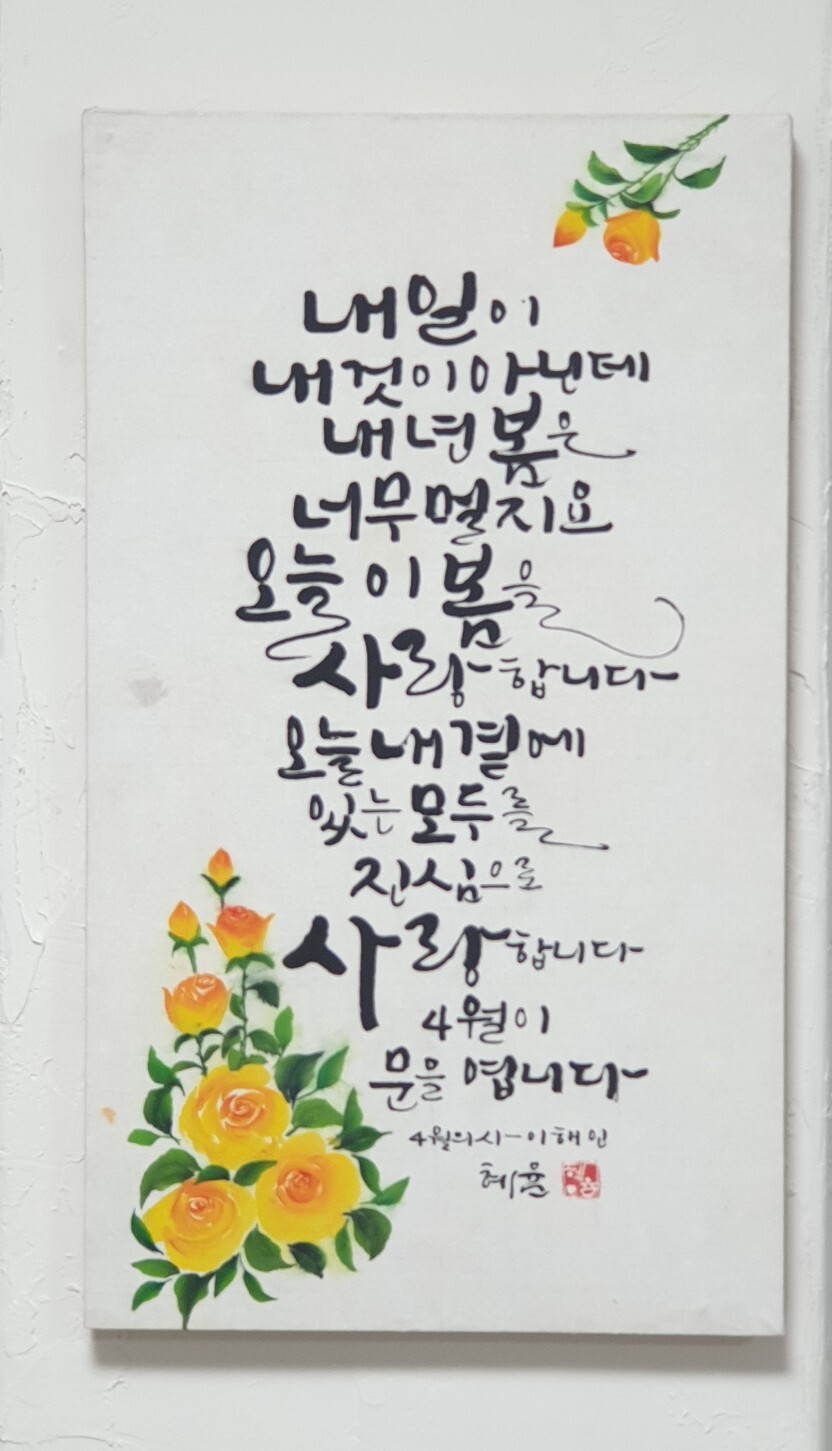 내일이
내것이아닌데
내년봄은
너무멀지요
오늘이봄을
사랑합니다
오늘내곁에
있는모두를
진심으로
사랑합니다
4월이
문을 엽니다
4월의시-이해인
혜윤